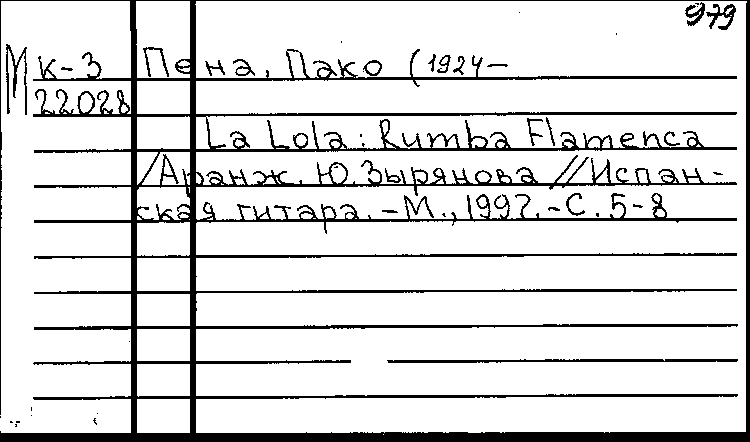 979
М к-3 Пена, Пако (1924-
22028
La Lola: Rumba Flamenca
/Аранж. Ю. Зырянова //Испан-
ская гитара. -М., 1997. -С. 5-8